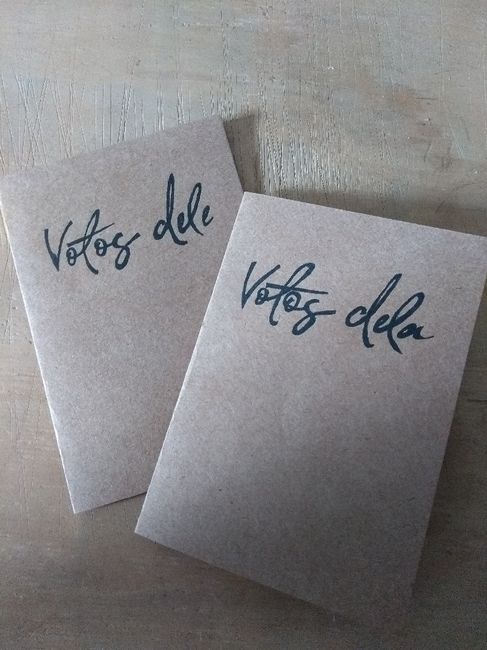 Votos dele
Votos dela